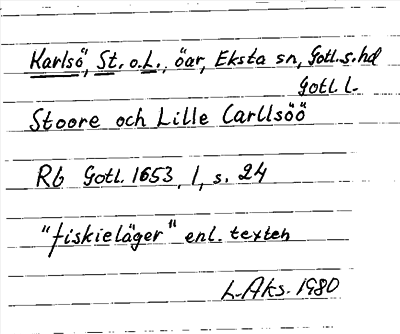 Karlsö, St. o. L., öar, Eksta sn, Gotl. s. hd
Gotl l.
Stoore och Lille Carllsöö
Rb Gotl. 1653, 1, s. 24
"fiskieläger" enl. texten
L. Aks. 1980